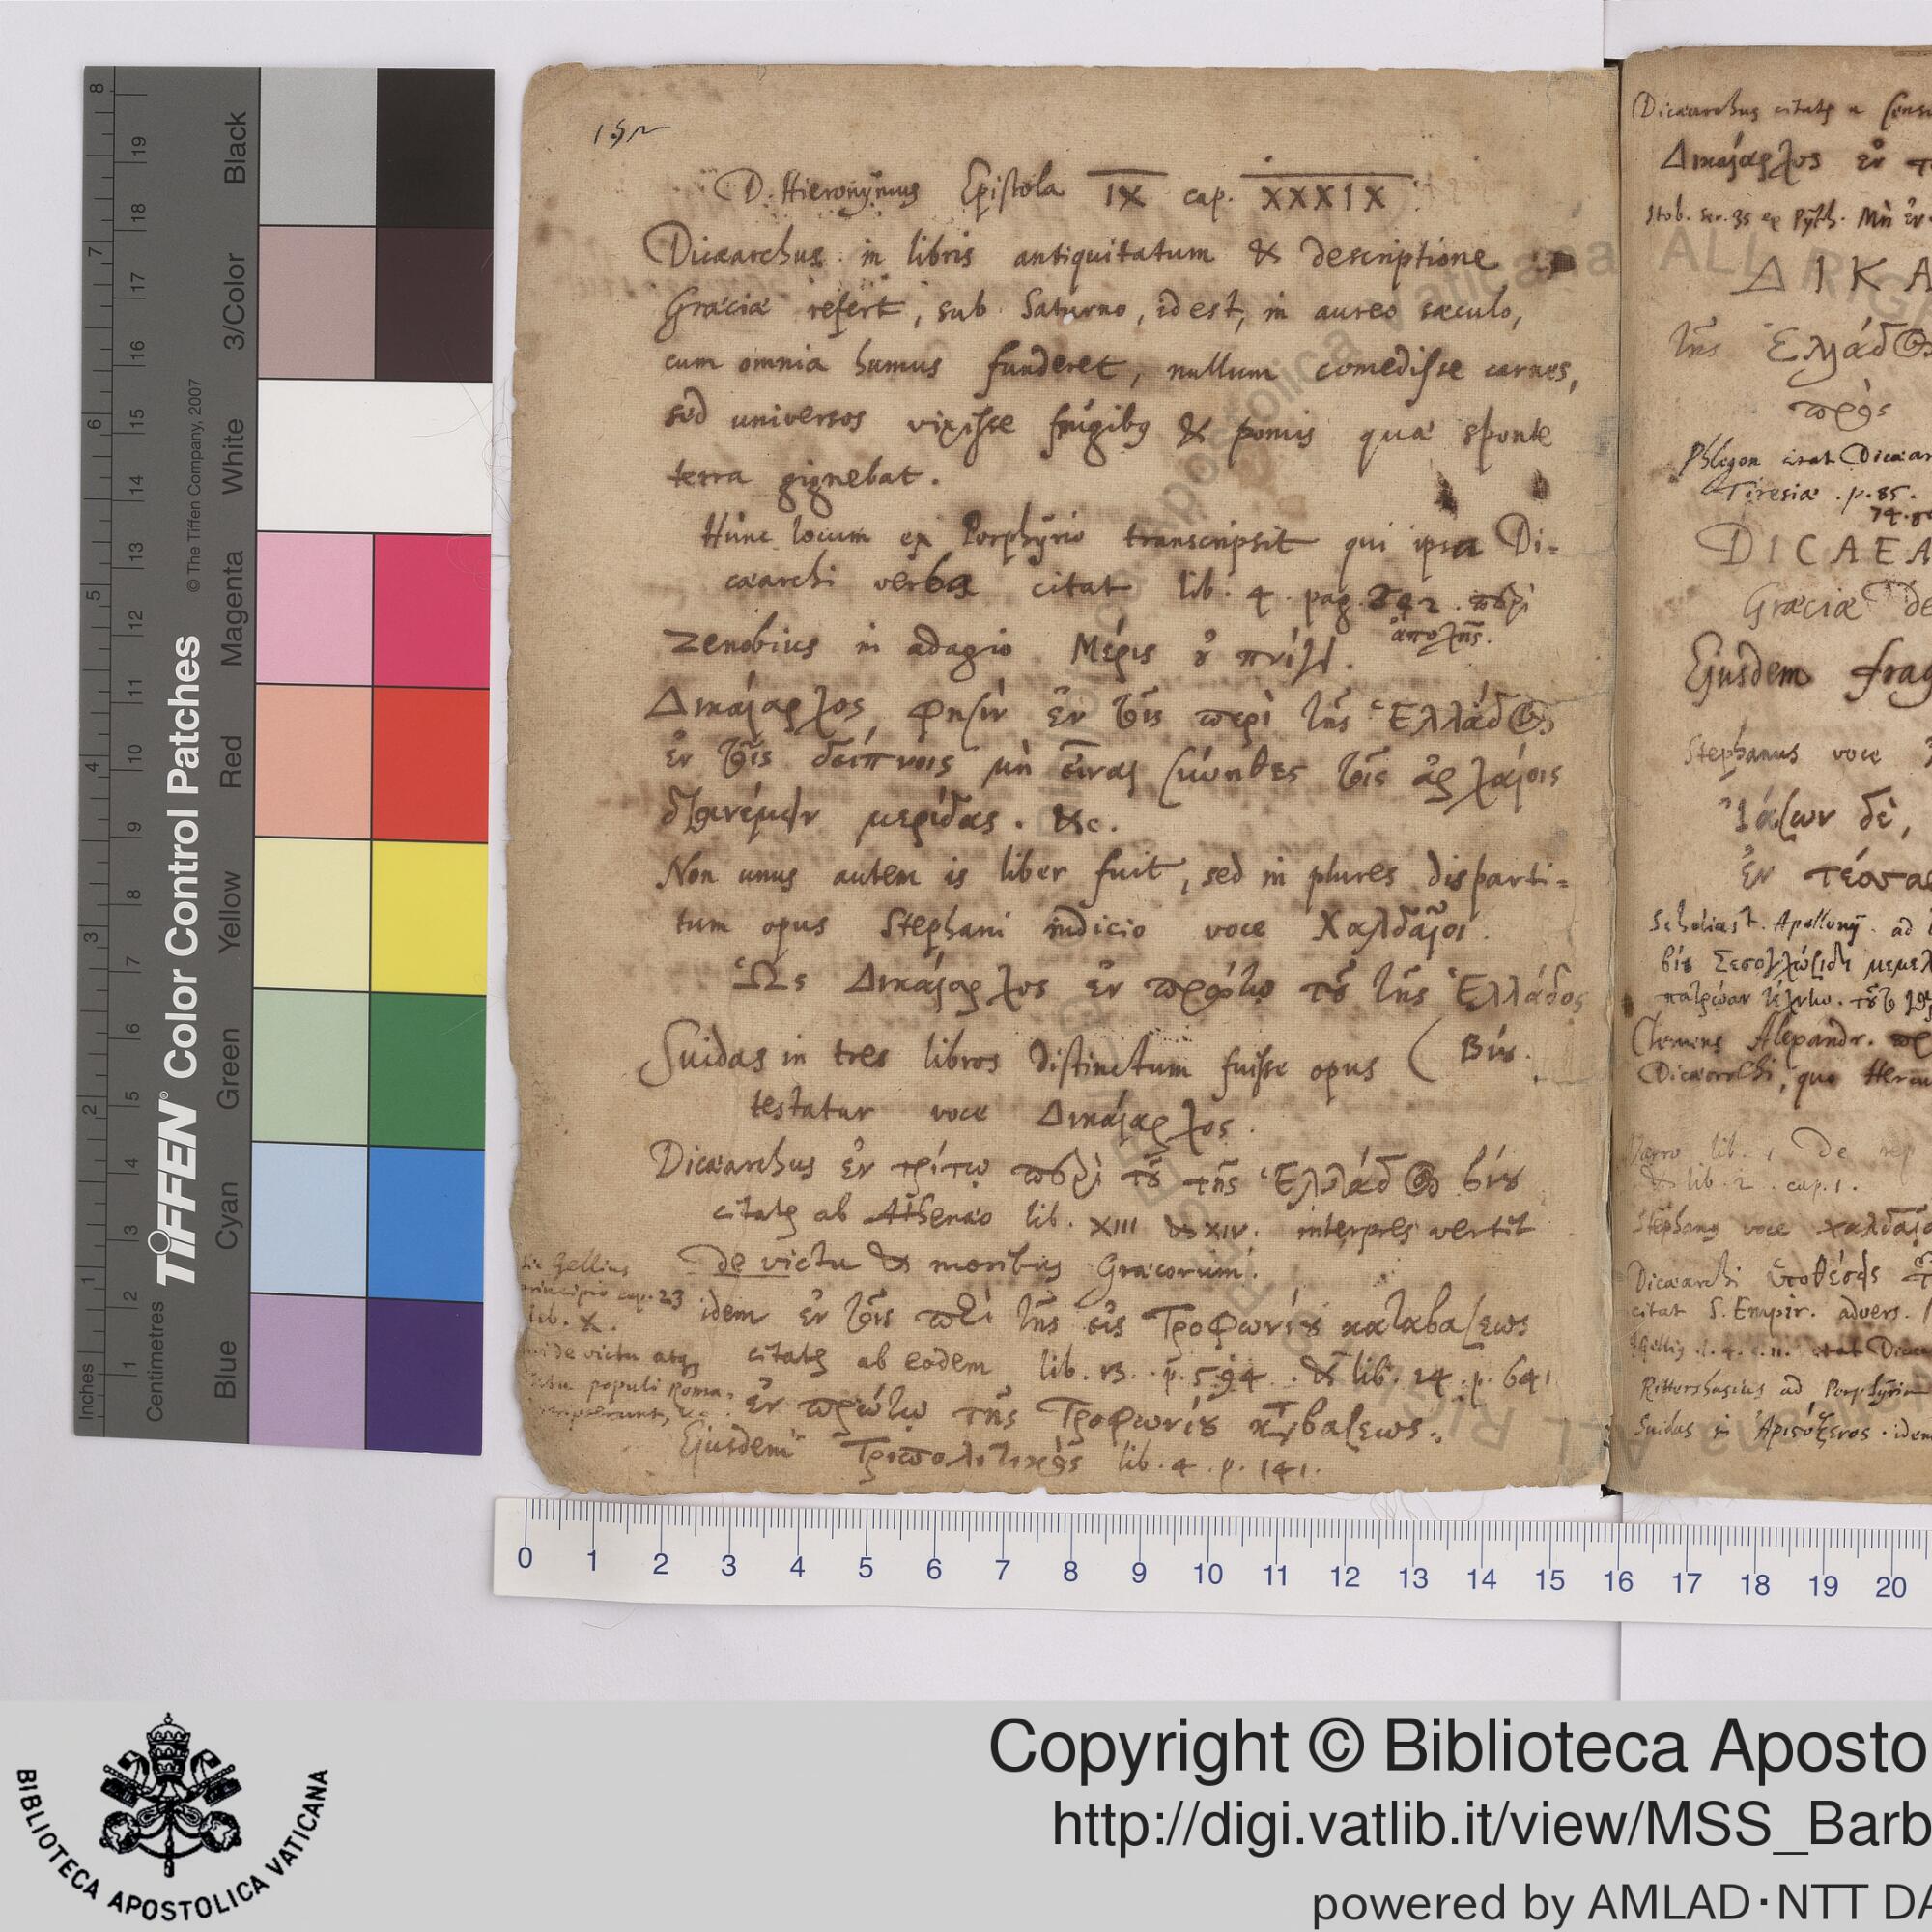 D. Hieronymus Epistola IX cap. XXXIX
Dicæarchus in libris antiquitatum & descriptione
Græciæ refert, sub Saturno, id est, in aureo sæculo,
cum omnia humus funderet, nullum comedisse carnes,
sed universos vixisse frugibus & pomis quæ sponte
terra gignebat.
Hunc locum ex Porphyrio transcripsit qui ipsa Di-
cæarchi verba citat lib. 4. pag. 242. περὶ
ἀποχῆς.
Zenobius in adagio Μέρις οὐ πνίγει.
Δικαίαρχος φησὶν ἐν τοῖς περὶ τῆς Ἑλλάδος
ἐν τοῖς δείπνοις μὴ εἶναι σύνηθες τοῖς ἀρχαίοις
διανέμειν μερίδας. &c.
Non unus autem is liber fuit, sed in plures disparti-
tum opus Stephani indicio voce Χαλδαῖοι.
Ὡς Δικαίαρχος ἐν πρώτῳ τοῦ τῆς Ἑλλάδος
Suidas in tres libros distinctum fuisse opus ( βίου.
testatur voce Δικαίαρχος.
Dicæarchus ἐν τρίτῳ περὶ τοῦ τῆς Ἑλλάδος βίου
citatur ab Athenæo lib. XIII & XIV. interpres vertit
de victu & moribus Græcorum.
idem ἐν τοῖς περὶ τῆς εἰς Τροφωνίου καταβάσεως
citatur ab eodem lib. 13. p. 594. & lib. 14. p. 641
ἐν πρώτῳ τῆς Τροφωνίου καταβάσεως.
Ejusdem Τριπολιτικὸς lib. 4. p. 141.
Gellius
principio cap. 23
lib. X.
de victu atq
populi Roma-
Dicæarchus citatur a
Δικαίαρχος ἐν
Stob. ser. 35 ex Pyth. Μὴ ἐν
ΔΙΚΑ
τῆς Ἑλλάδος
πρὸς
Phlegon citat Dicæar
Tiresia. p. 85.
74.
DICAEA
Græciæ de
Ejusdem frag
Stephanus voce
Ἰάσων δὲ,
Ἐν
Scholiast. Apollonij. ad
βίου
Clemens Alexandr.
Dicæarchi, quo
Varro lib. 1 De
& lib. 2. cap. 1.
Stephanus voce χαλδαῖο
Dicæarchi ὑποθέσεις
citat S. Empir. advers.
Rittershusius ad Porphyrium
Suidas in Ἀριστόξενος. idem
Inches
1
2
3
4
5
6
7
8
Centimetres
1
2
3
4
5
6
7
8
9
10
11
12
13
14
15
16
17
18
19
TIFFEN® Color Control Patches
© The Tiffen Company, 2007
Blue
Cyan
Green
Yellow
Red
Magenta
White
3/Color
Black
0 1 2 3 4 5 6 7 8 9 10 11 12 13 14 15 16 17 18 19 20
BIBLIOTECA APOSTOLICA VATICANA
Copyright © Biblioteca Aposto
http://digi.vatlib.it/view/MSS_Barb
powered by AMLAD·NTT DA